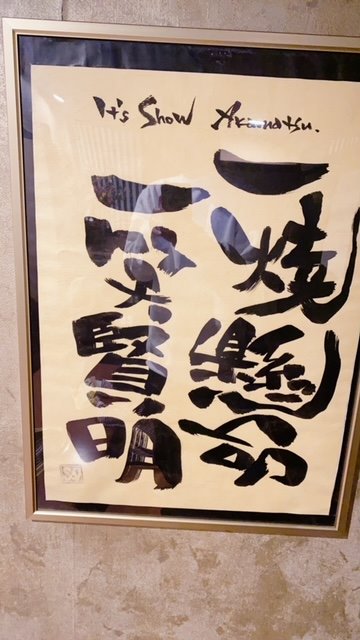 It's Show Akamatsu.
一焼懸命
一受賢明